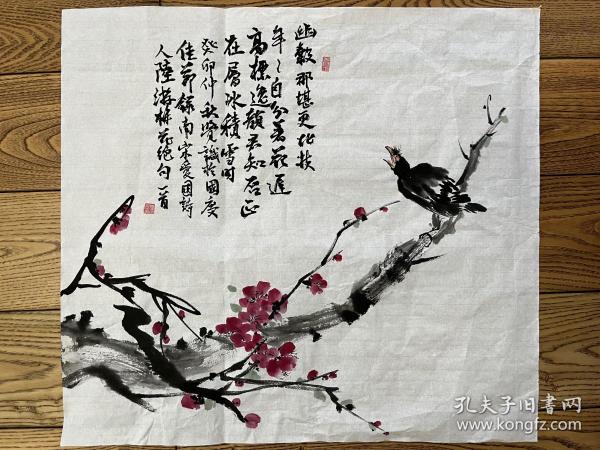 幽谷那堪更北枝
年々自分着花遲
高標逸韻君知否正
在層冰積雪時
癸卯仲秋覺識於國慶
佳節錄南宋愛國詩
人陸游梅花絕句一首
孔夫子旧書网
www.kongfz.com